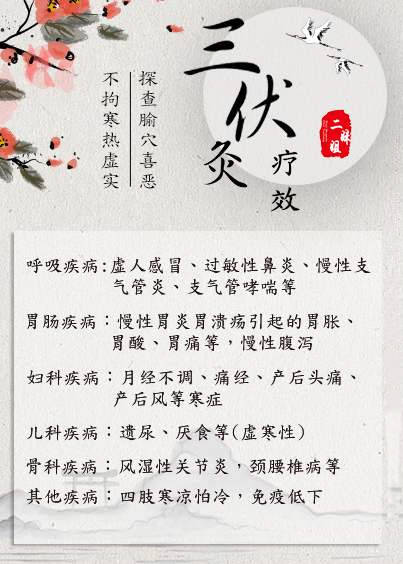 三伏灸
疗效
探查腧穴喜恶
不拘寒热虚实
二妹姐
呼吸疾病:虚人感冒、过敏性鼻炎、慢性支
气管炎、支气管哮喘等
胃肠疾病：慢性胃炎胃溃疡引起的胃胀、
胃酸、胃痛等，慢性腹泻
妇科疾病：月经不调、痛经、产后头痛、
产后风等寒症
儿科疾病：遗尿、厌食等(虚寒性)
骨科疾病：风湿性关节炎，颈腰椎病等
其他疾病：四肢寒凉怕冷，免疫低下